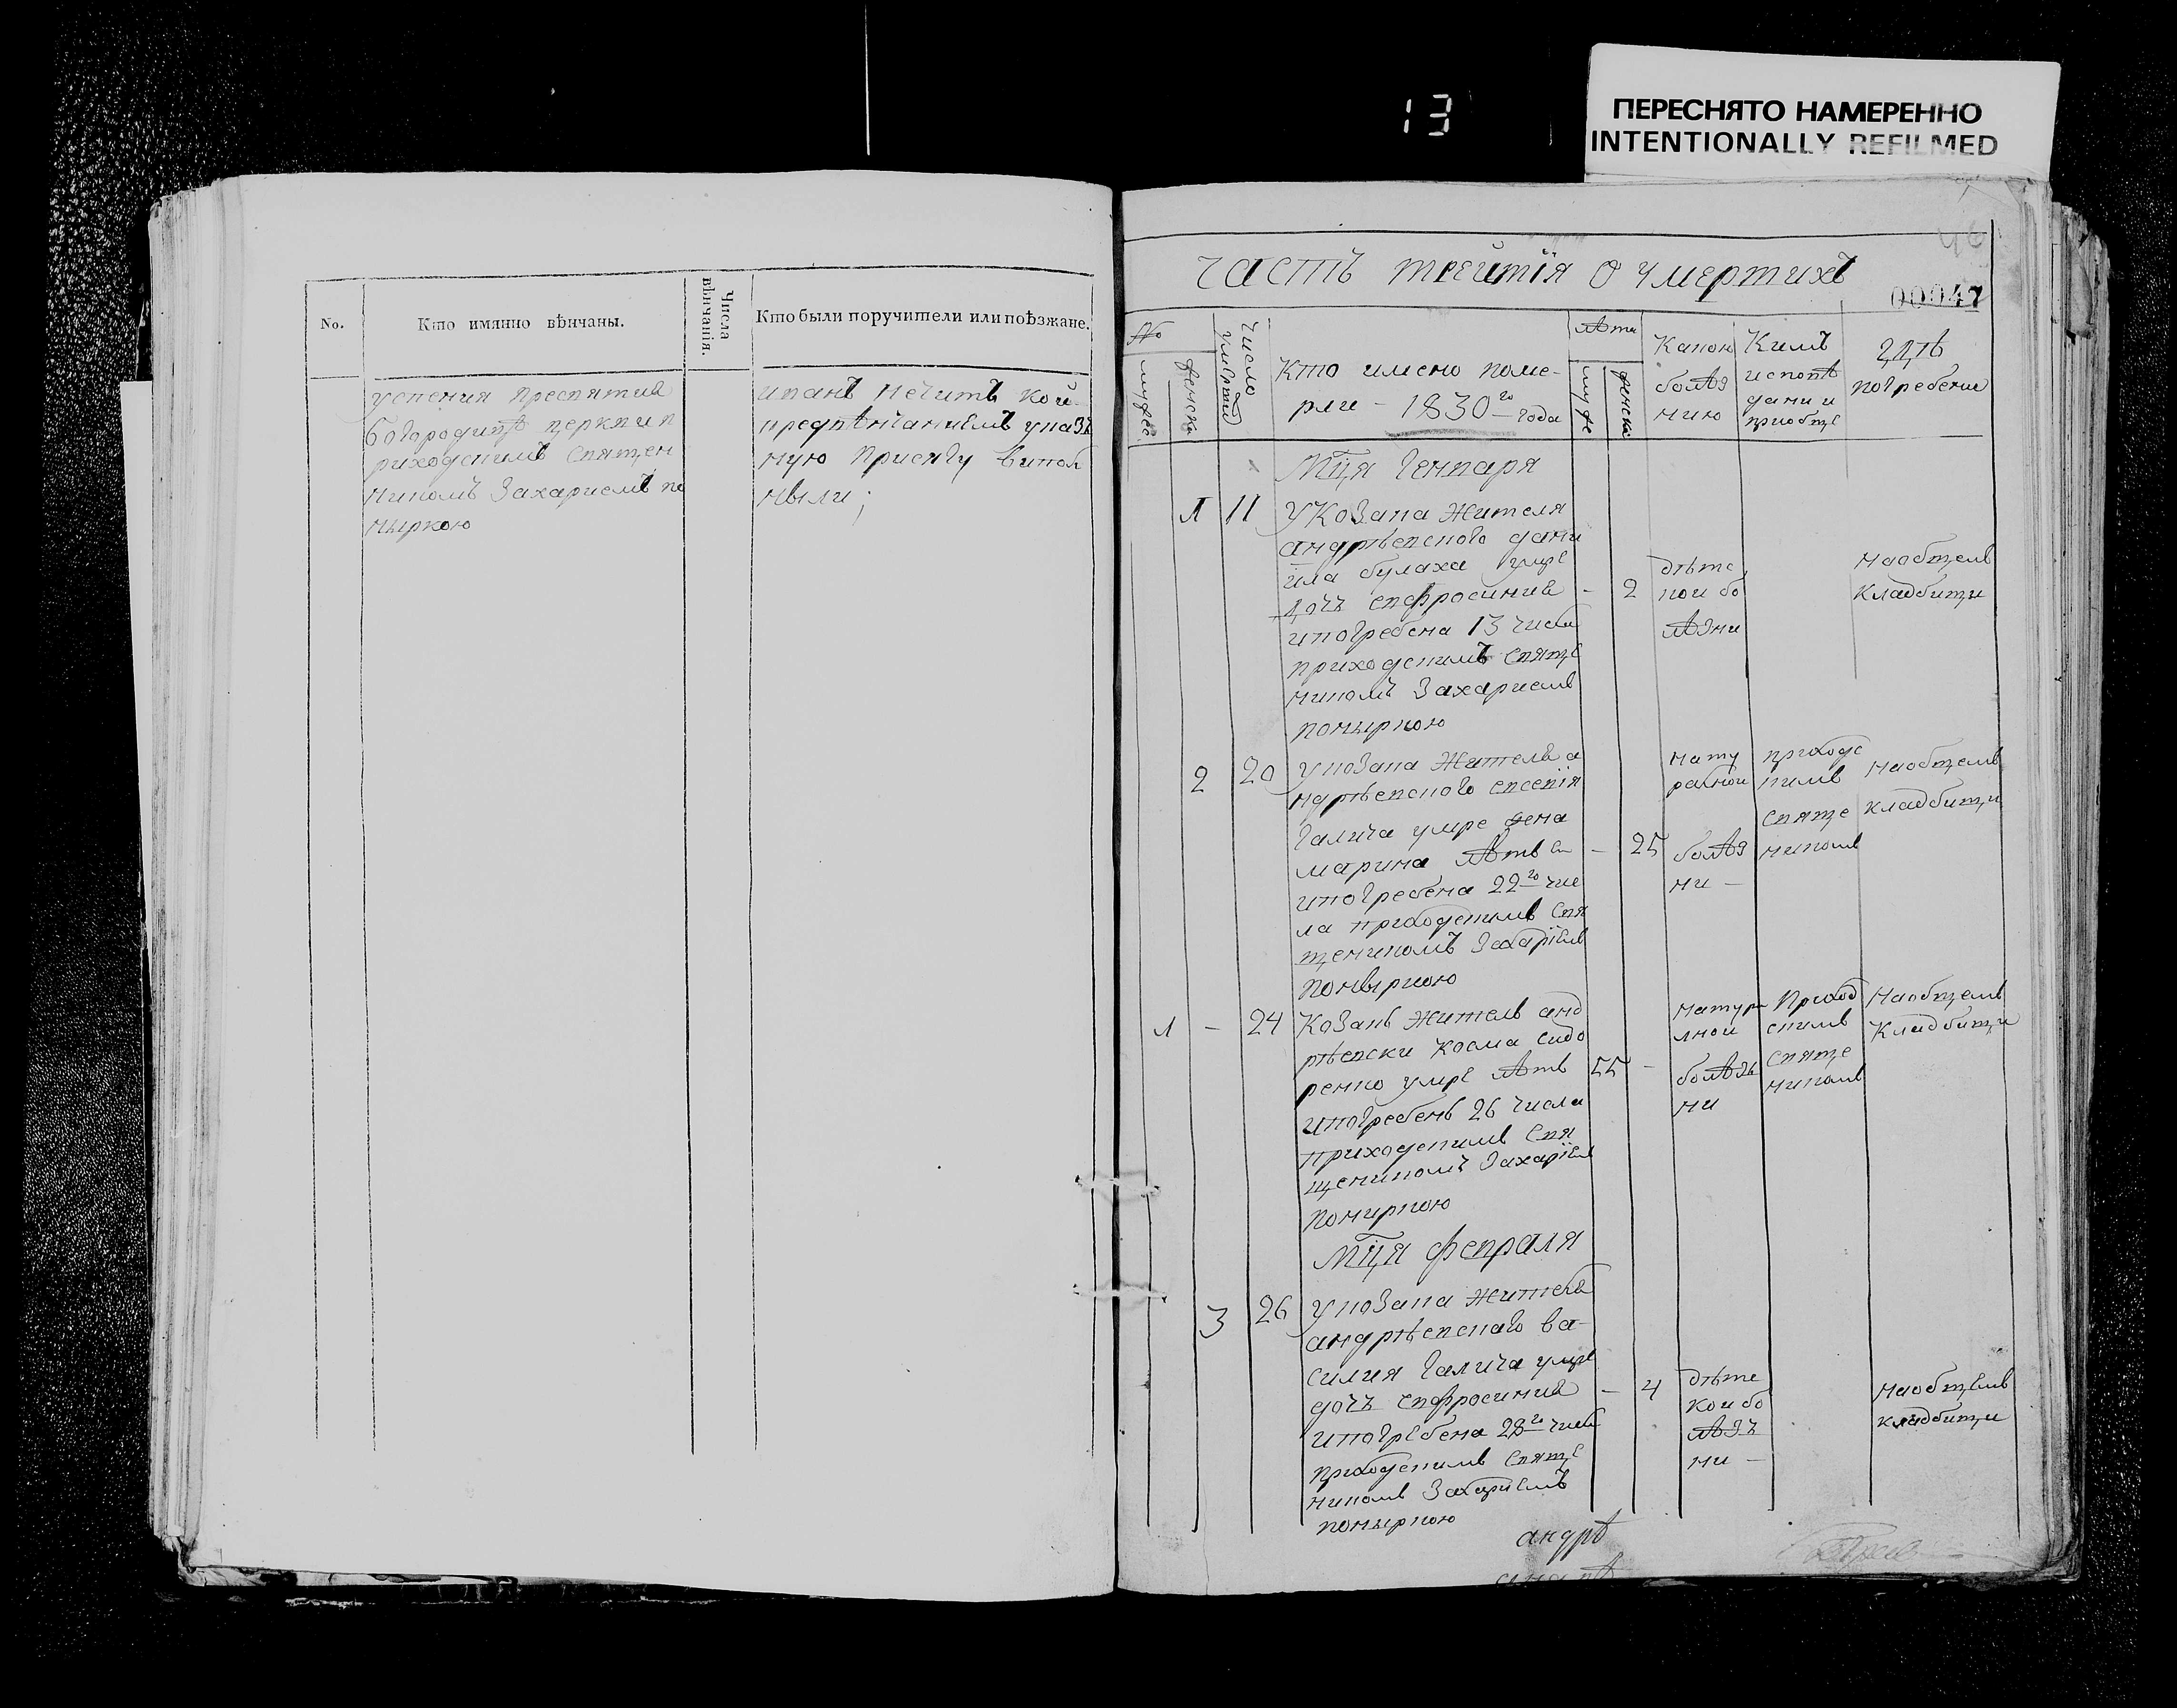 13
ПЕРЕСНЯТО НАМЕРЕННО
INTENTIONALLY REFILMED
No.
Кто имянно вѣнчаны.
Числа вѣнчанія.
Кто были поручители или поѣзжане.
успения пресвятия
богородицѣ церкви п
риходскимъ священ
никомъ Захариемъ по
ныркою
иванъ кои
предвѣнчаниемъ указ
ную присягу випол
нили;
46
00047
часть трейтія о умертихъ
No
мужес
женска
число умертв
Кто имено поме-
рли - 1830го года
лѣта
муже
женска
Какои
болѣз
нию
Кимъ
исповѣ
дани и
приобще
гдѣ
погребени
Мця Генваря
1 11 у козака жителя
андрѣевского дани
іила булаха умре
дочь евфросиния - 2
и погребена 13 числа
приходскимъ свяще
никомъ Захариемъ
поныркою
дѣтс
кои бо
лѣзни
на общемъ
кладбищи
2 20 у козака жителя а
ндрѣевского евсевія
Галича умре жена
марина лѣтъ - 25
и погребена 22го чис
ла приходскимъ свя
щеникомъ Захаріемъ
поныркою
нату
ралнои
болѣз
ни -
приходс
кимъ
свяще
никомъ
на общемъ
кладбищи
1 - 24 Козакъ житель анд
рѣевски косма сидо
ренко умре лѣтъ 55 -
и погребенъ 26 числа
приходскимъ свя
щеникомъ Захаріем
поныркою
натура
лнои
болѣзь
ни
приход
скимъ
свяще
никомъ
на общемъ
кладбищи
Мця февраля
3 26 у козака жителя
андрѣевскаго ва-
силия Галича умре
дочь евфросиния - 4
и погребена 28го числ
приходскимъ свяще
никомъ Захариемъ
поныркою
дѣте
кои бо
лѣзъ
ни -
на общемъ
кладбищи
андрѣ